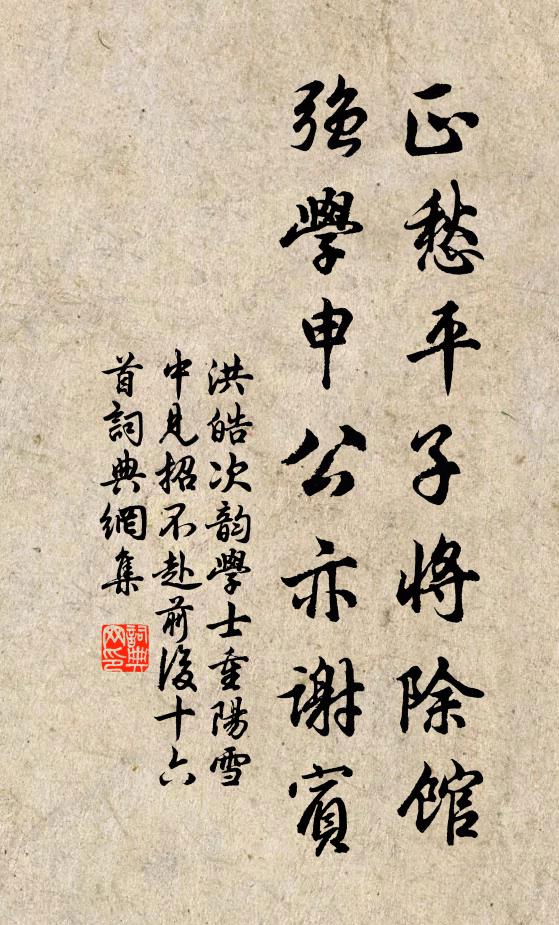 正愁平子將除館
強學申公亦謝賓
洪皓次韵學士重陽雪
中見招不赴前後十六
首詞典網集
詞典
网印